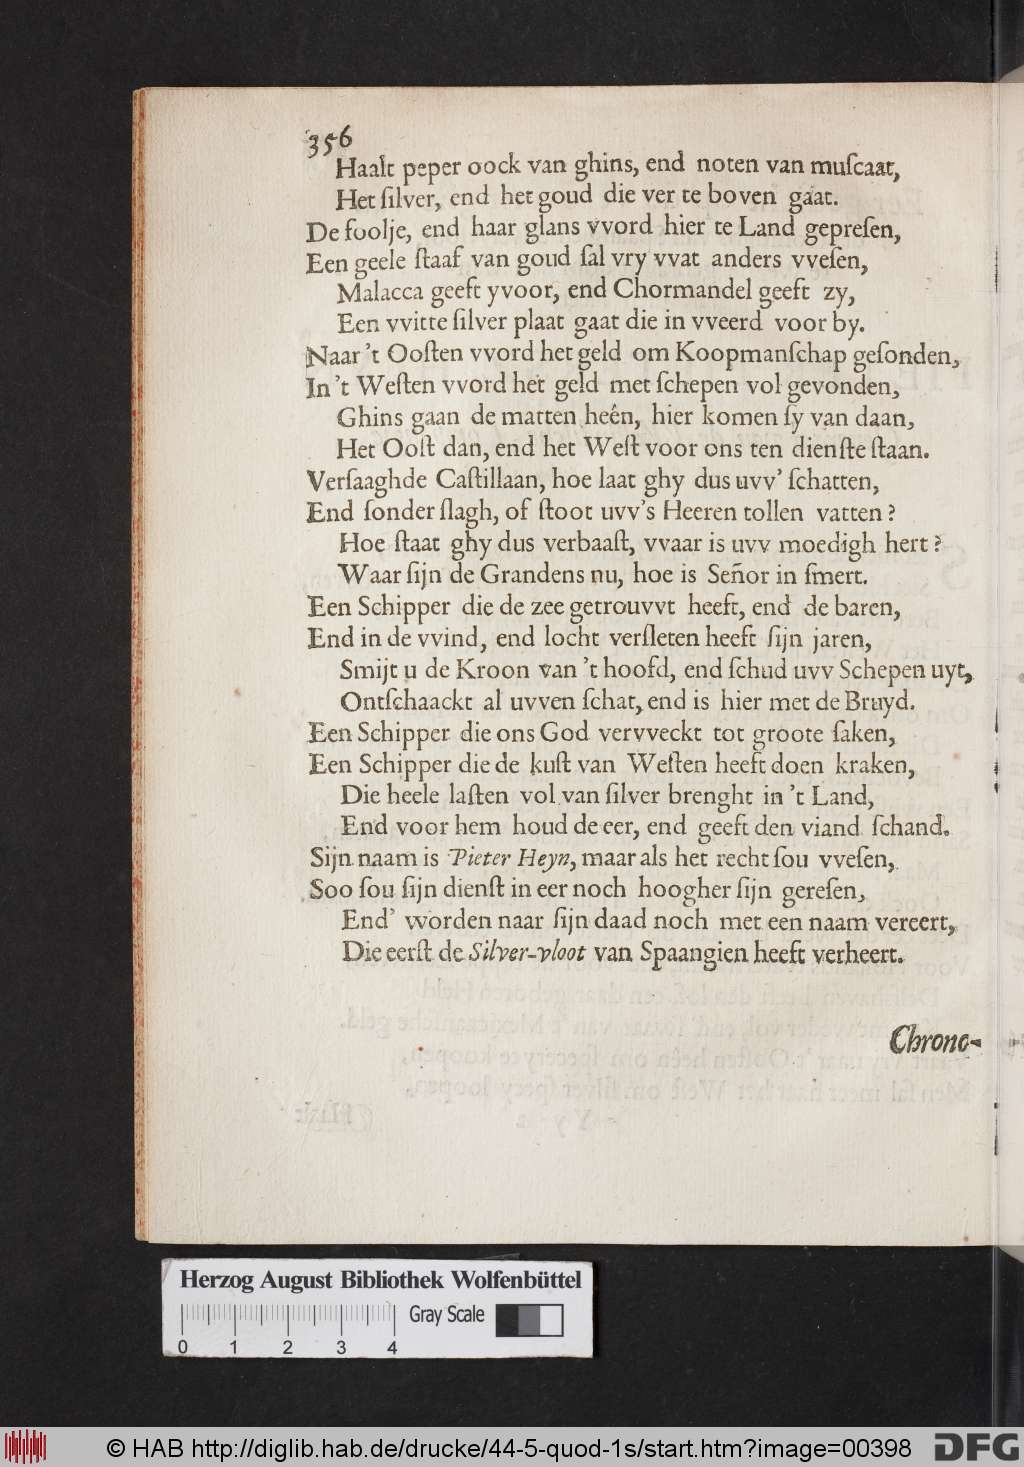 356
Haalt peper oock van ghins, end noten van muſcaat,
Het ſilver, end het goud die ver te boven gaat.
De foolje, end haar glans vvord hier te Land gepreſen,
Een geele ſtaaf van goud ſal vry vvat anders vveſen,
Malacca geeft yvoor, end Chormandel geeft zy,
Een vvitte ſilver plaat gaat die in vveerd voor by.
Naar 't Ooſten vvord het geld om Koopmanſchap geſonden,
In 't Weſten vvord het geld met ſchepen vol gevonden,
Ghins gaan de matten heên, hier komen ſy van daan,
Het Ooſt dan, end het Weſt voor ons ten dienſte ſtaan.
Verſaaghde Caſtillaan, hoe laat ghy dus uvv' ſchatten,
End ſonder ſlagh, of ſtoot uvv's Heeren tollen vatten?
Hoe ſtaat ghy dus verbaaſt, vvaar is uvv moedigh hert?
Waar ſijn de Grandens nu, hoe is Señor in ſmert.
Een Schipper die de zee getrouvvt heeft, end de baren,
End in de vvind, end locht verſleten heeft ſijn jaren,
Smijt u de Kroon van 't hoofd, end ſchud uvv Schepen uyt,
Ontſchaackt al uvven ſchat, end is hier met de Bruyd.
Een Schipper die ons God vervveckt tot groote ſaken,
Een Schipper die de kuſt van Weſten heeft doen kraken,
Die heele laſten vol van ſilver brenght in 't Land,
End voor hem houd de eer, end geeft den viand ſchand.
Sijn naam is Pieter Heyn, maar als het recht ſou vveſen,
Soo ſou ſijn dienſt in eer noch hoogher ſijn gereſen,
End' worden naar ſijn daad noch met een naam vereert,
Die eerſt de Silver-vloot van Spaangien heeft verheert.
Chrono-
Herzog August Bibliothek Wolfenbüttel
Gray Scale
0 1 2 3 4
© HAB http://diglib.hab.de/drucke/44-5-quod-1s/start.htm?image=00398
DFG